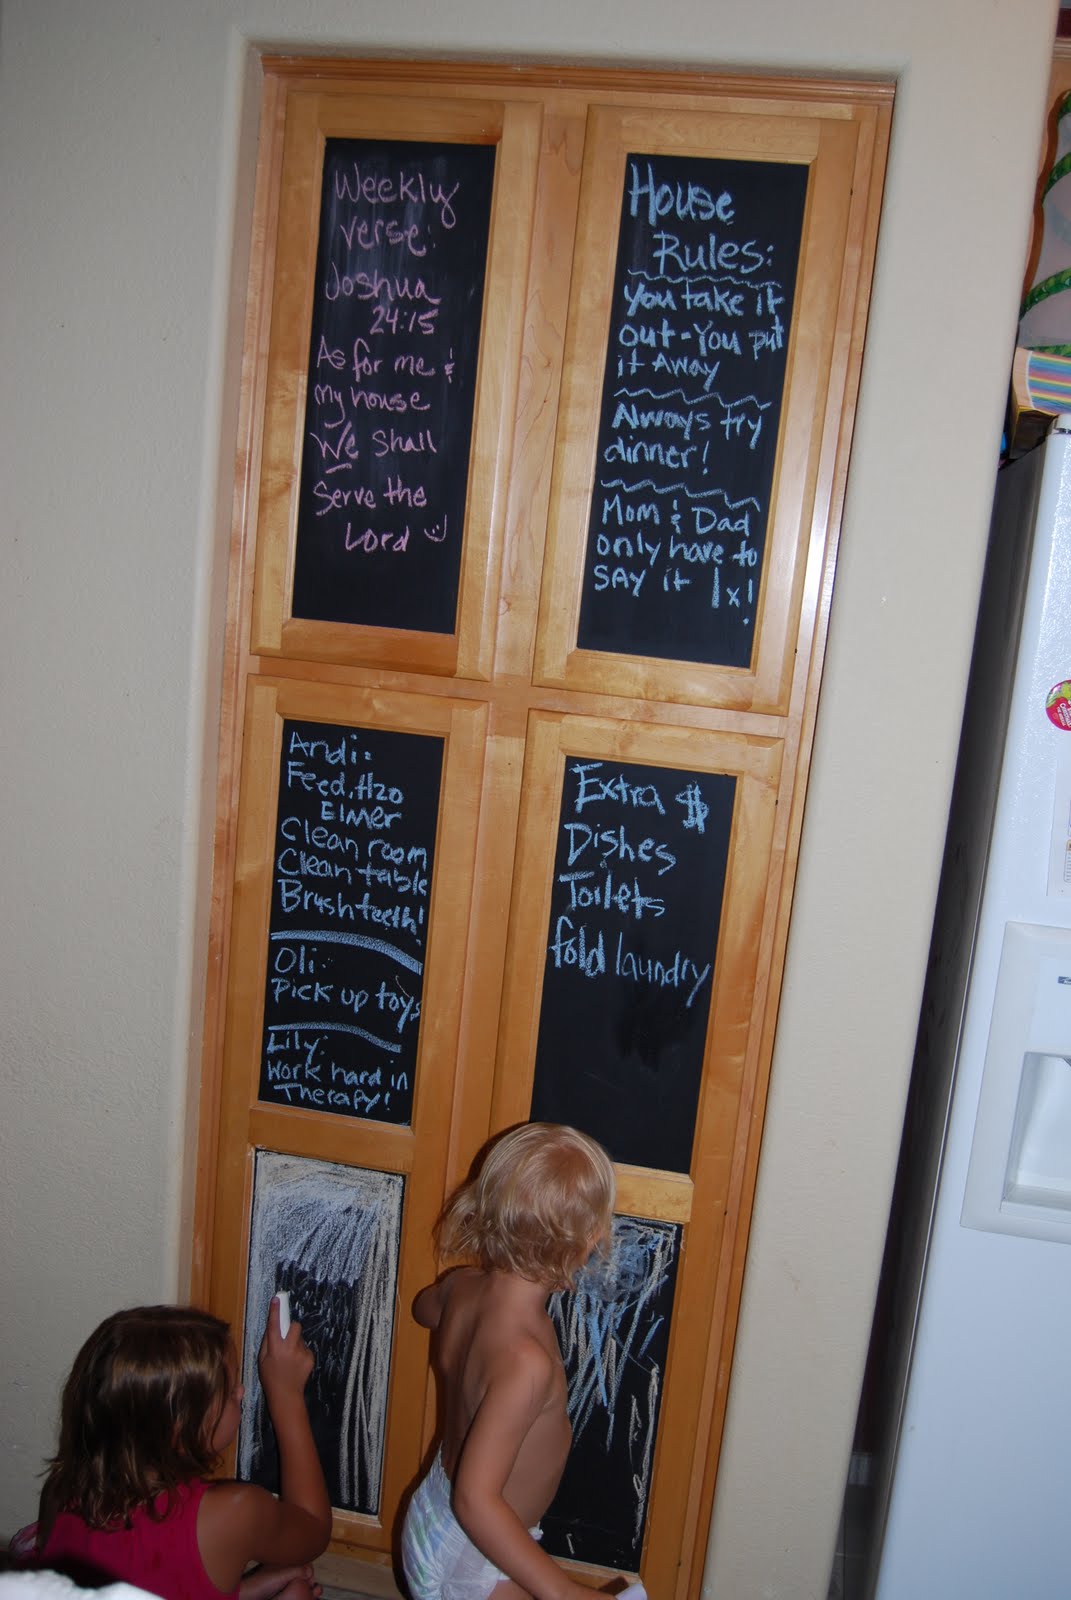 Weekly
verse:
Joshua
24:15
As for me &
my house
We shall
serve the
Lord
House
Rules:
You take it
out - You put
it Away
Always try
dinner!
Mom & Dad
only have to
SAY it 1x!
Andi:
Feed, H2O
Elmer
Clean room
Clean table
Brush teeth!
Oli:
Pick up toys
Lily:
Work hard in
Therapy!
Extra $
Dishes
Toilets
fold laundry